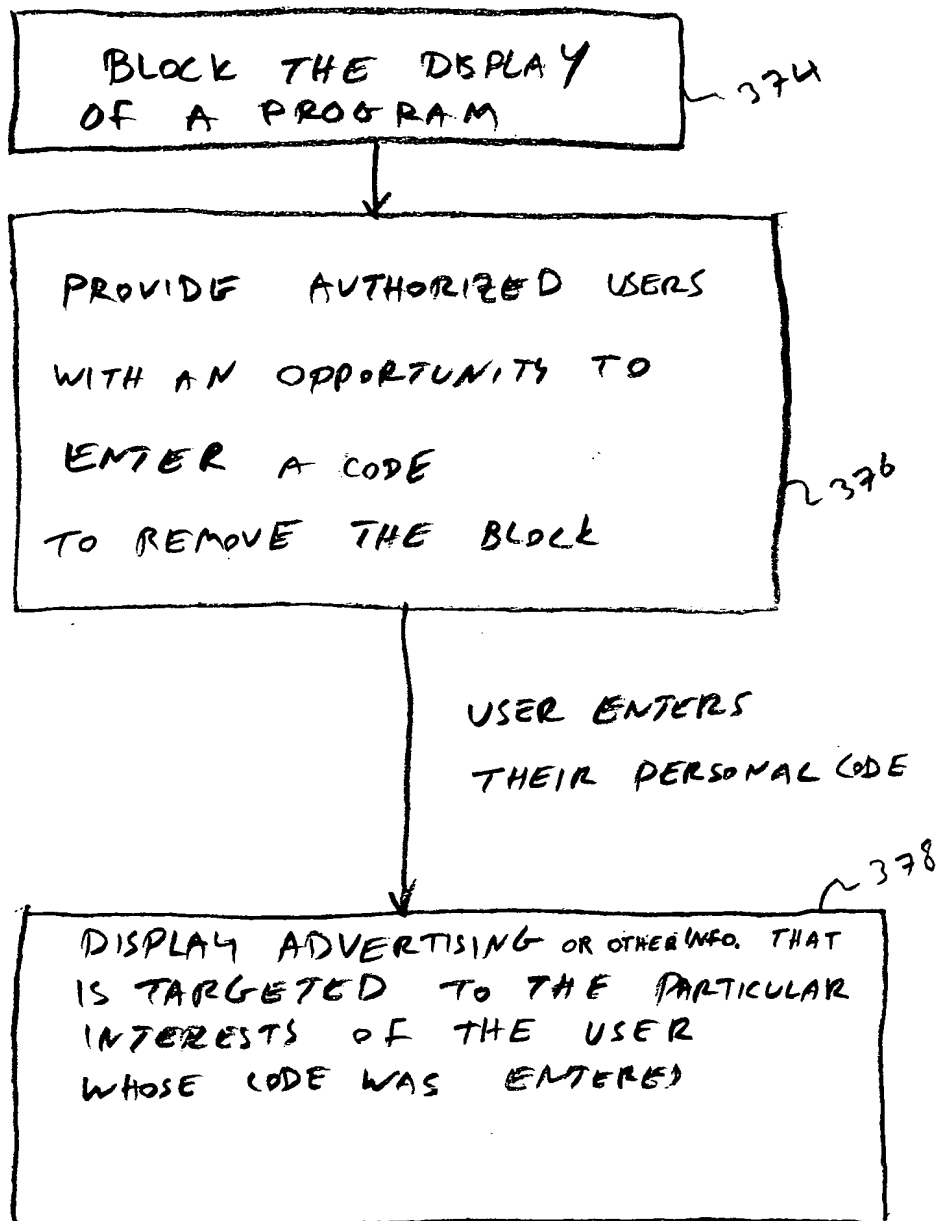 BLOCK THE DISPLAY
OF A PROGRAM
374
PROVIDE AUTHORIZED USERS
WITH AN OPPORTUNITY TO
ENTER A CODE
TO REMOVE THE BLOCK
376
USER ENTERS
THEIR PERSONAL CODE
378
DISPLAY ADVERTISING OR OTHER INFO. THAT
IS TARGETED TO THE PARTICULAR
INTERESTS OF THE USER
WHOSE CODE WAS ENTERED